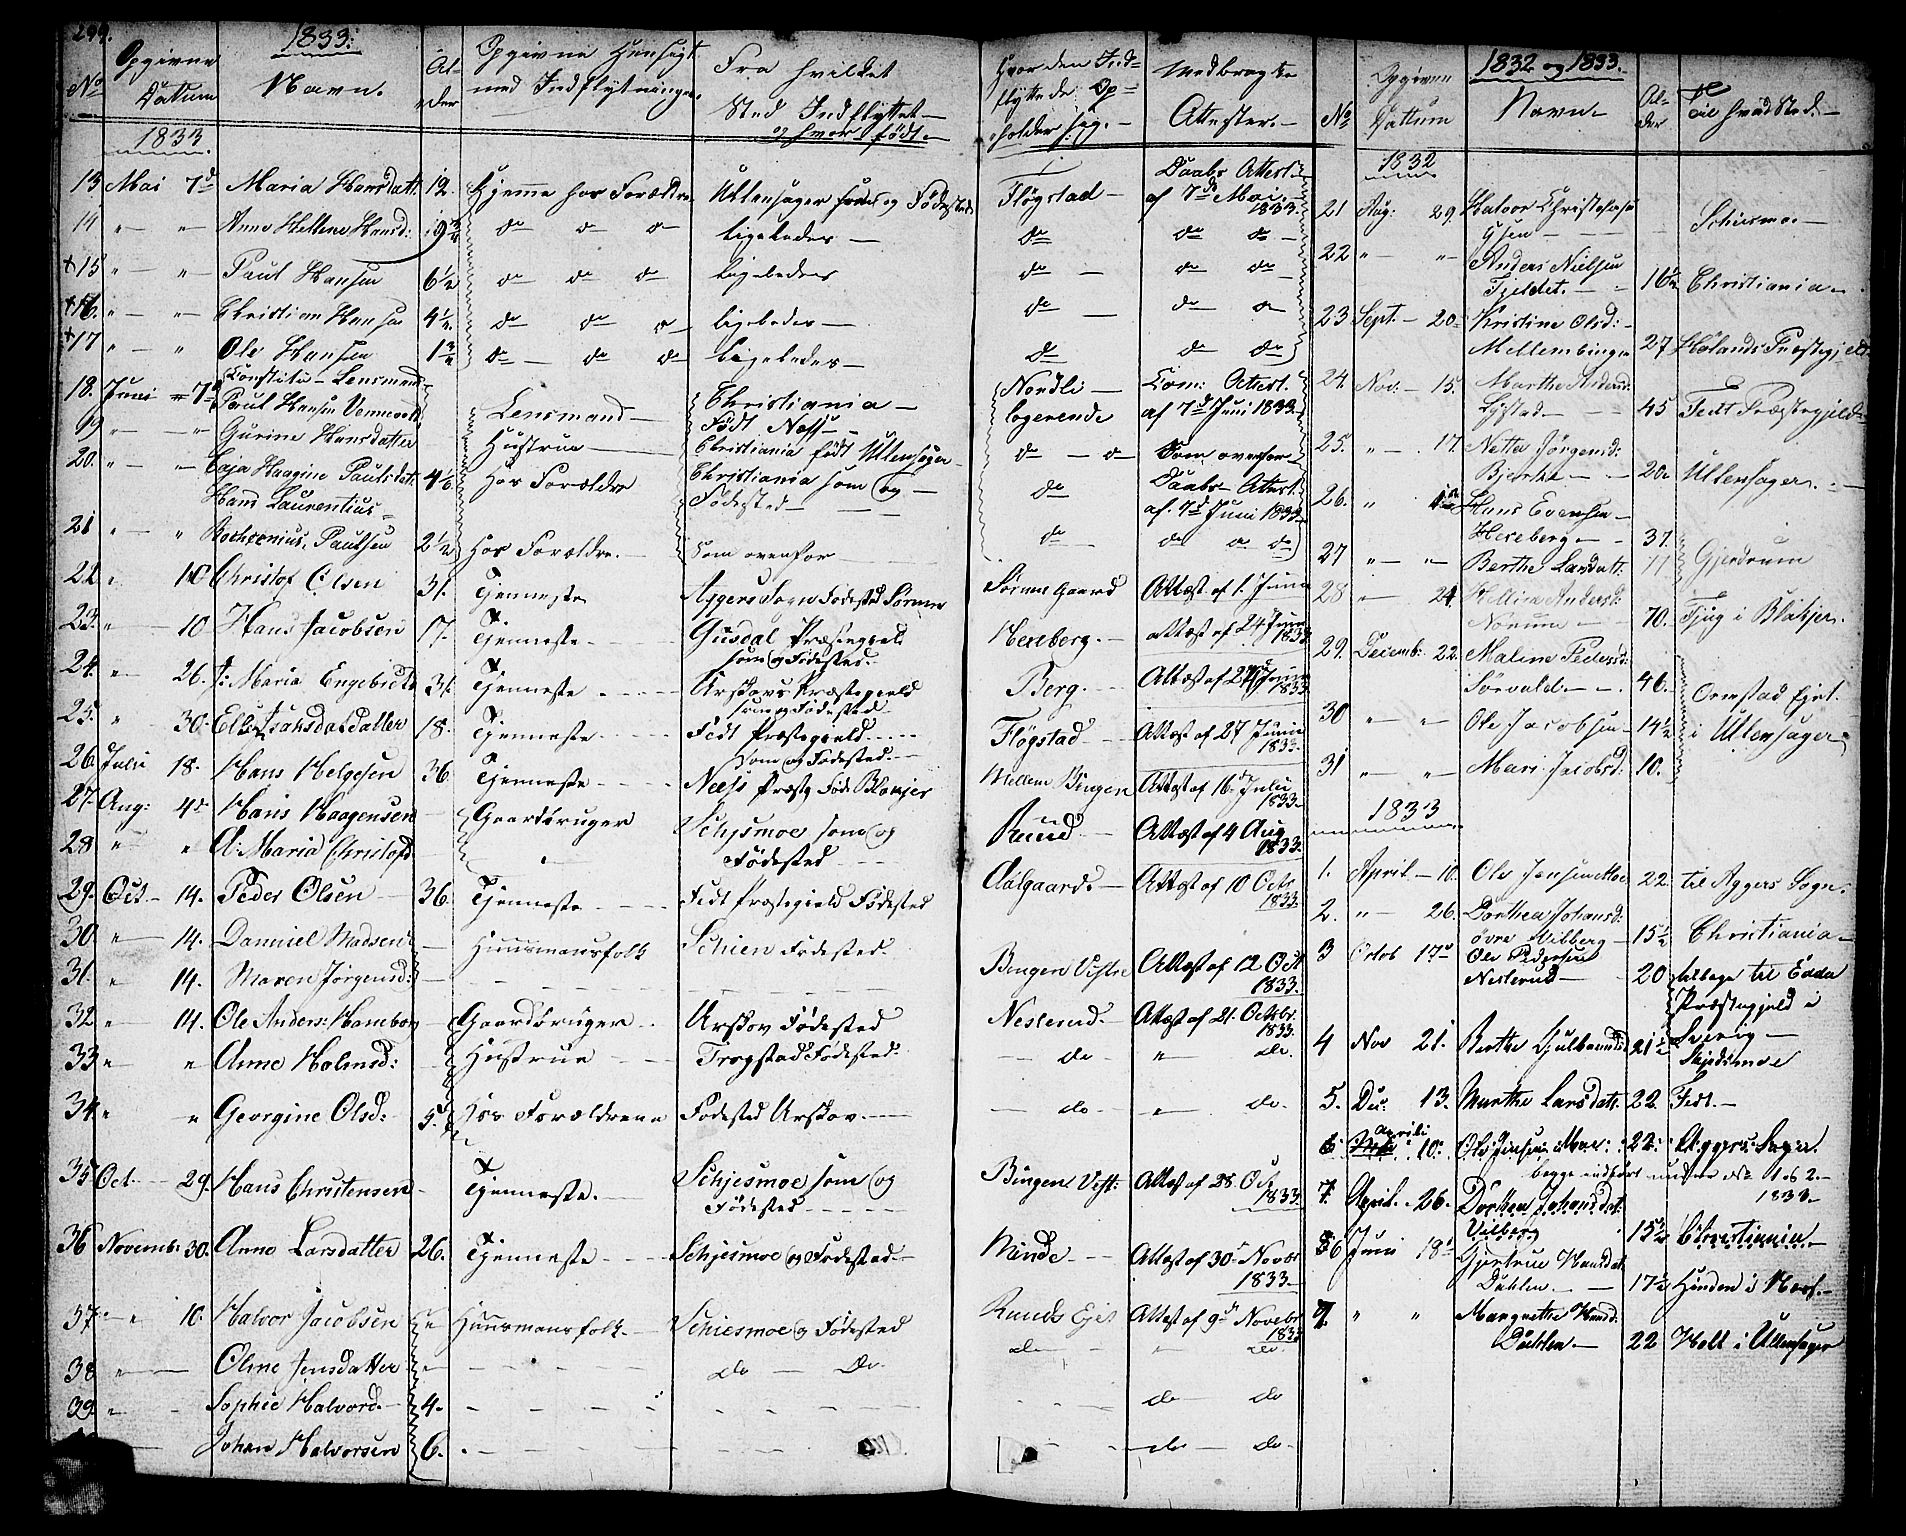 299.
1833.
No
Opgivne Datum
Navn.
Alder
Opgivne Hensigt med Indflytningen
Fra hvilket Sted Indflyttet og hvor født.
Hvor den Indflyttede Opholder sig.
Medbragte Attester.
1833
13 Mai 7d Maria Hansdatt: 12. Hjemme hos Forældre Ullensager som og Fødested Fløgstad Daabs Attest af 7d Mai 1833.
14 " " Anne Hellene Hansd: 9 1/2 do do do ligeledes do do do
+15 " " Paul Hansen 6 1/2 do do do ligeledes do do do
+16. " " Christian Hansen 4 1/2. do do do ligeledes do do do
+17 " " Ole Hansen do do do ligeledes do do do
18. Juni 7d Constitu Lensmand Paul Hansen Lensmand Christiania Født Næss Nordli logerende Com: Attest. af 7d Juni 1833
19 " " Gurine Hansdatter Hustrue Christiania født Ullensager do do Som ovenfor
20. " " Caja Haagine Paulsdat: 4 1/2 Hos Forældre Christiania som og Fødested do Daabs Attest af 7d Juni 1833
21 " " Hans Laurentius Paulsen 2 1/2 Hos Forældre. Som ovenfor do do do do
22 " 10 Christof Olsen 31. Tjenneste Aggers Sogn Fødested Sørum Sørum Gaard Attest af 1. Juni
23. " 10 Hans Jacobsen 17. Tjenneste Gusdal Præstegield som og Fødested. Herberg. Attest af 24 Juni 1833
24. " 26. Maria Engebretsd 31. Tjenneste Urskovs Præstegield som og Fødested Berg. Attest af 24 Juni 1833
25. " 30. 18. Tjenneste Fedt Præstegield Som og Fødested. Fløgstad Attest af 27 Junii 1833.
26. Julii 18. Hans Helgesen 36 Tjenneste Næss Præstg Fød: Blakjer Mellem Bingen Attest af 16 Julii 1833
27. Aug: 4d Hans Haagensen Gaardbruger Schjesmoe som og Fødested Ruud Attest af 4 Aug 1833.
28 " " A: Maria Christofd "
29. Oct. 14. Peder Olsen 36. Tjenneste Fedt Præstegield Fødested Aalgaard Attest af 10 Octr 1833
30 " 14. Danniel Madsen Huusmansfolk Schien Fødested. Bingen Vestre Attest af 12 Oct 1833.
31. " 14. Maren Jørgensd:
32 " 14. Ole Anders: Haneborg Gaardbruger Urskov Fødested Nesterud. Attest af 21. Octobr 1833
33 " " Anne Holmsd: Hustrue Trogstad Fødested do " do.
34 " " Georgine Olsd: 5. Hos Forældrene Fødested Urskov. do do
35 Oct. 29. Hans Christensen Tjenneste. Schjesmoe som og Fødested Bingen Vest: Attest af 28 Oct 1833
36 Novemb: 30. Anne Larsdatter 26. Tjenneste Schjesmoe og Fødested Attest af 30 Novbr 1833
37. " 10. Halvor Jacobsen Huusmansfolk. Schiesmoe og Fødested Ruuds Ejet Attest af 9de Novebr 1833
38 " Jensdatter do do do do
39 " Sophie Halvord. 4. do do
Johan Halvorsen 6. do do
1832 og 1833.
No
Opgiven Dattum
Navn
Alder
Til hvad Sted.
1832
21 Aug: 29. Halvor Christophers Schiesmoe
22 " " Anders Nielsen Fjeldet. 16 1/2 Christiania
23 Sept. 20 Kristine Olsd: Mellembingen 27 Hølands Præstegjeld
24. Nov. 15. Marthe Andersd: 45 Fedt Præstegjeld
25. " 17. Nette Jørgensd: Bjerke 20 Ullensager.
26. " Hans Evensen Herberg 37 Gjerdrum
27 " " Berthe Larsdatt: 11
28 " 24. Andersd: 70. Fjug i Blakjer.
29. Decemb: 22. Malene Pedersd: Sørvald 46. Ormstad Ejet. i Ullensager
30 " " Ole Jacobsen 14 1/2
31 " " Mari Jacobsd: 10.
1833
1. April 10. Ole Jensen Moe 22. til Aggers Sogn.
2. " 26. Dorthea Johansd: øvre Vilberg 15 1/2 Christiania
3 Octob 17d Ole Pedersen Nesterud 20 tilbage til Edda Præstegjeld i Sverig
4 Nov 21. Berthe Gulbrandsd 21 1/2 Skjedsmoe
5. Dec. 13. Marthe Larsdatt. 22. Fedt.
6 Aprili 10. Ole Jensen Moe: 22: Aggers Sogn
begge indført under No 1 & 2 1833
7. April. 26. Dorthea Johansdat. Vilberg 15 1/2 Christiania
6 Juni 18d Gjertrue Hansdat. Dahlen 17 1/2 Hønden i Næss.
7. " " Margrethe Hansd: Dahlen. 22 Holt i Ullensager